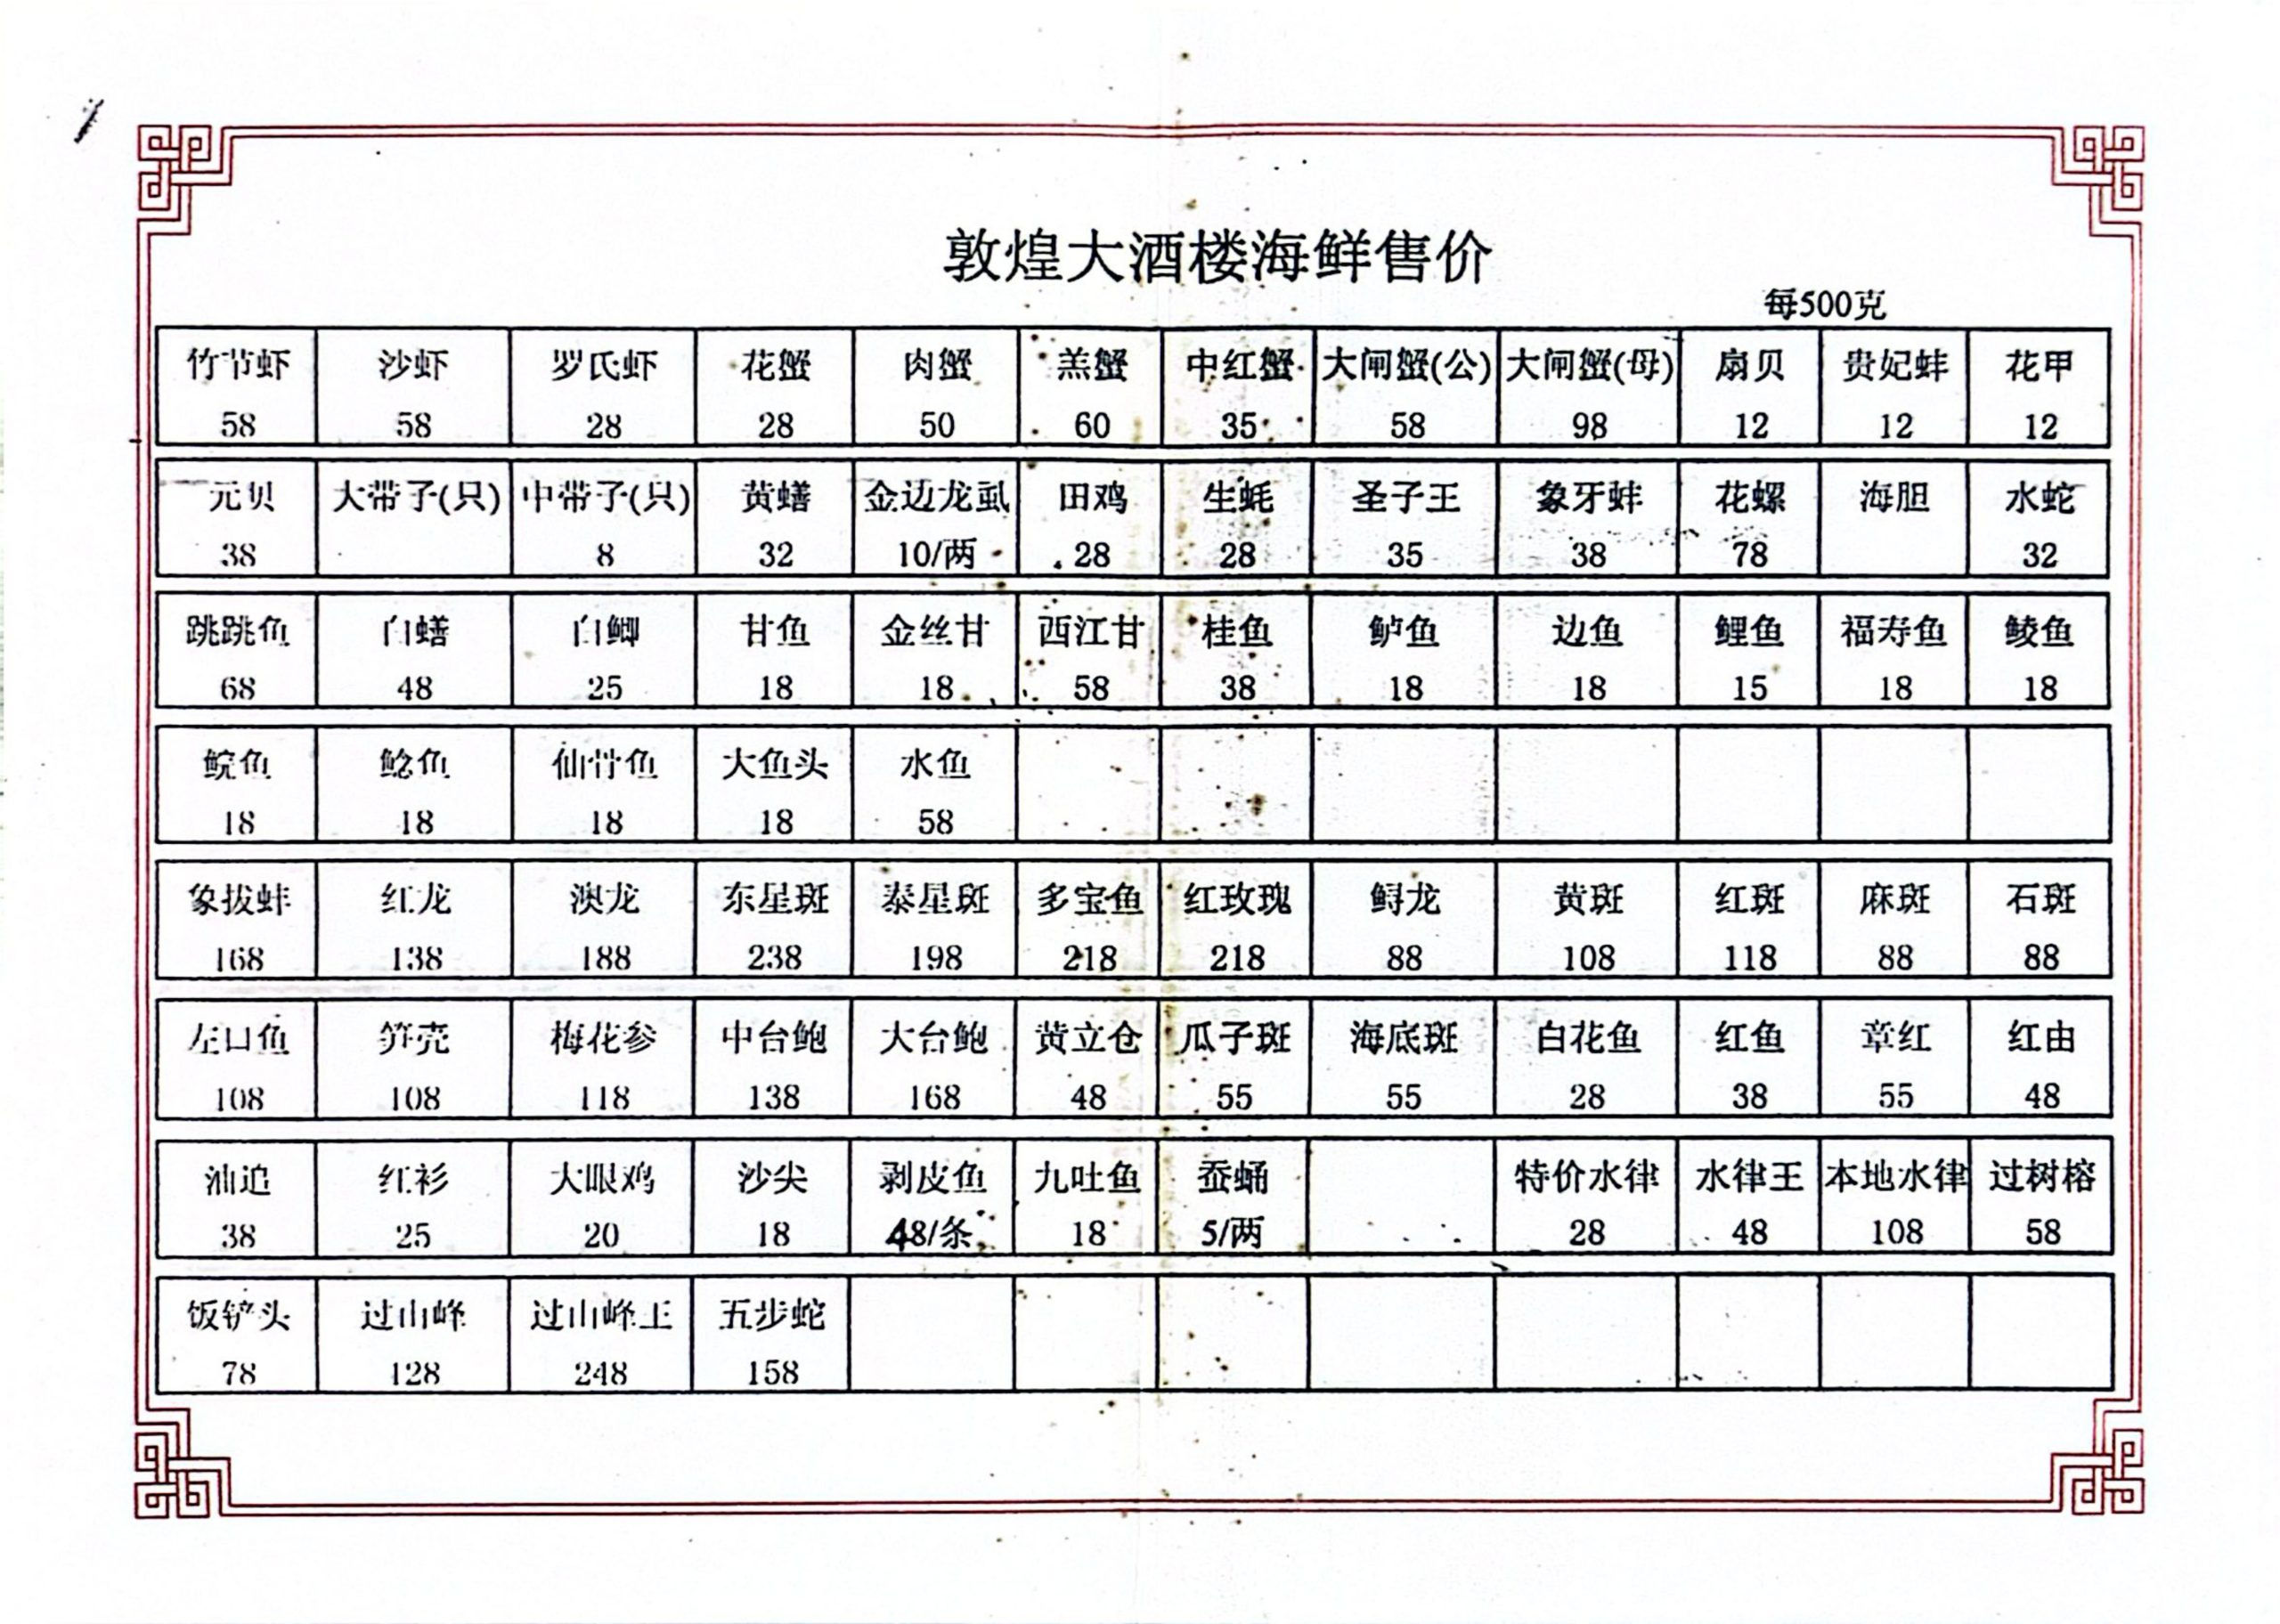 敦煌大酒楼海鲜售价
每500克
竹节虾 沙虾 罗氏虾 花蟹 肉蟹 羔蟹 中红蟹 大闸蟹(公) 大闸蟹(母) 扇贝 贵妃蚌 花甲
58 58 28 28 50 60 35 58 98 12 12 12
元贝 大带子(只) 中带子(只) 黄蟮 金边龙虱 田鸡 生蚝 圣子王 象牙蚌 花螺 海胆 水蛇
38 8 32 10/两 28 28 35 38 78 32
跳跳鱼 白蟮 白鲫 甘鱼 金丝甘 西江甘 桂鱼 鲈鱼 边鱼 鲤鱼 福寿鱼 鲮鱼
68 48 25 18 18 58 38 18 18 15 18 18
鲩鱼 鲶鱼 仙骨鱼 大鱼头 水鱼
18 18 18 18 58
象拔蚌 红龙 澳龙 东星斑 泰星斑 多宝鱼 红玫瑰 鲟龙 黄斑 红斑 麻斑 石斑
168 138 188 238 198 218 218 88 108 118 88 88
左口鱼 笋壳 梅花参 中台鲍 大台鲍 黄立仓 瓜子斑 海底斑 白花鱼 红鱼 章红 红由
108 108 118 138 168 48 55 55 28 38 55 48
油追 红衫 大眼鸡 沙尖 剥皮鱼 九吐鱼 蚕蛹 特价水律 水律王 本地水律 过树榕
38 25 20 18 48/条 18 5/两 28 48 108 58
饭铲头 过山峰 过山峰王 五步蛇
78 128 248 158